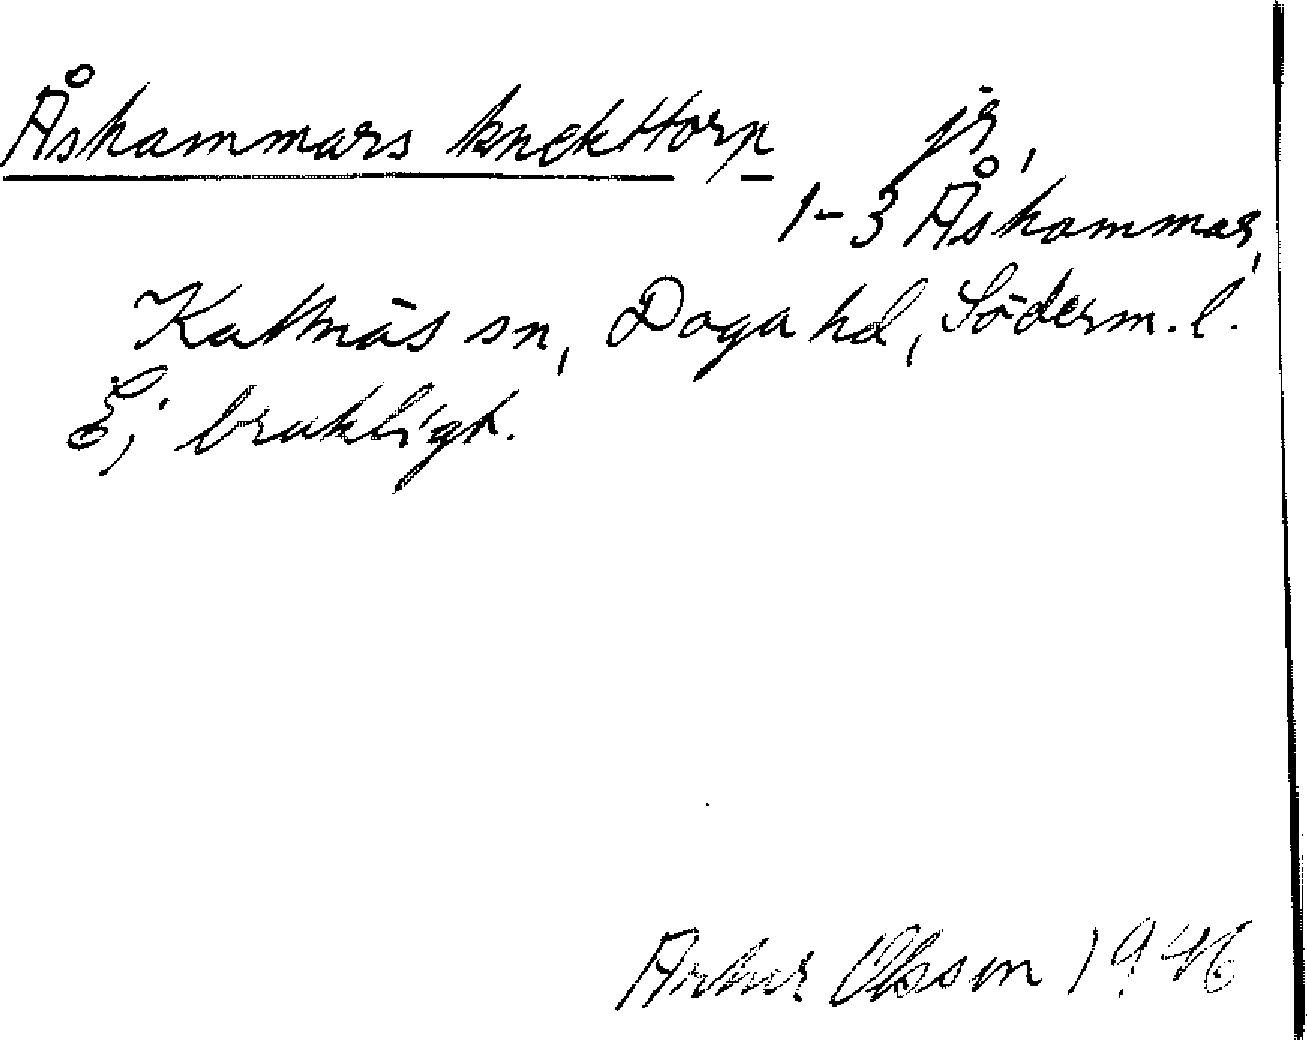 Åshammars knekttorp jr,
1-3 Åshammar,
Kattnäs sn, Daga hd, Söderm. l.
Ej brukligt.
Artur Olsson 1946